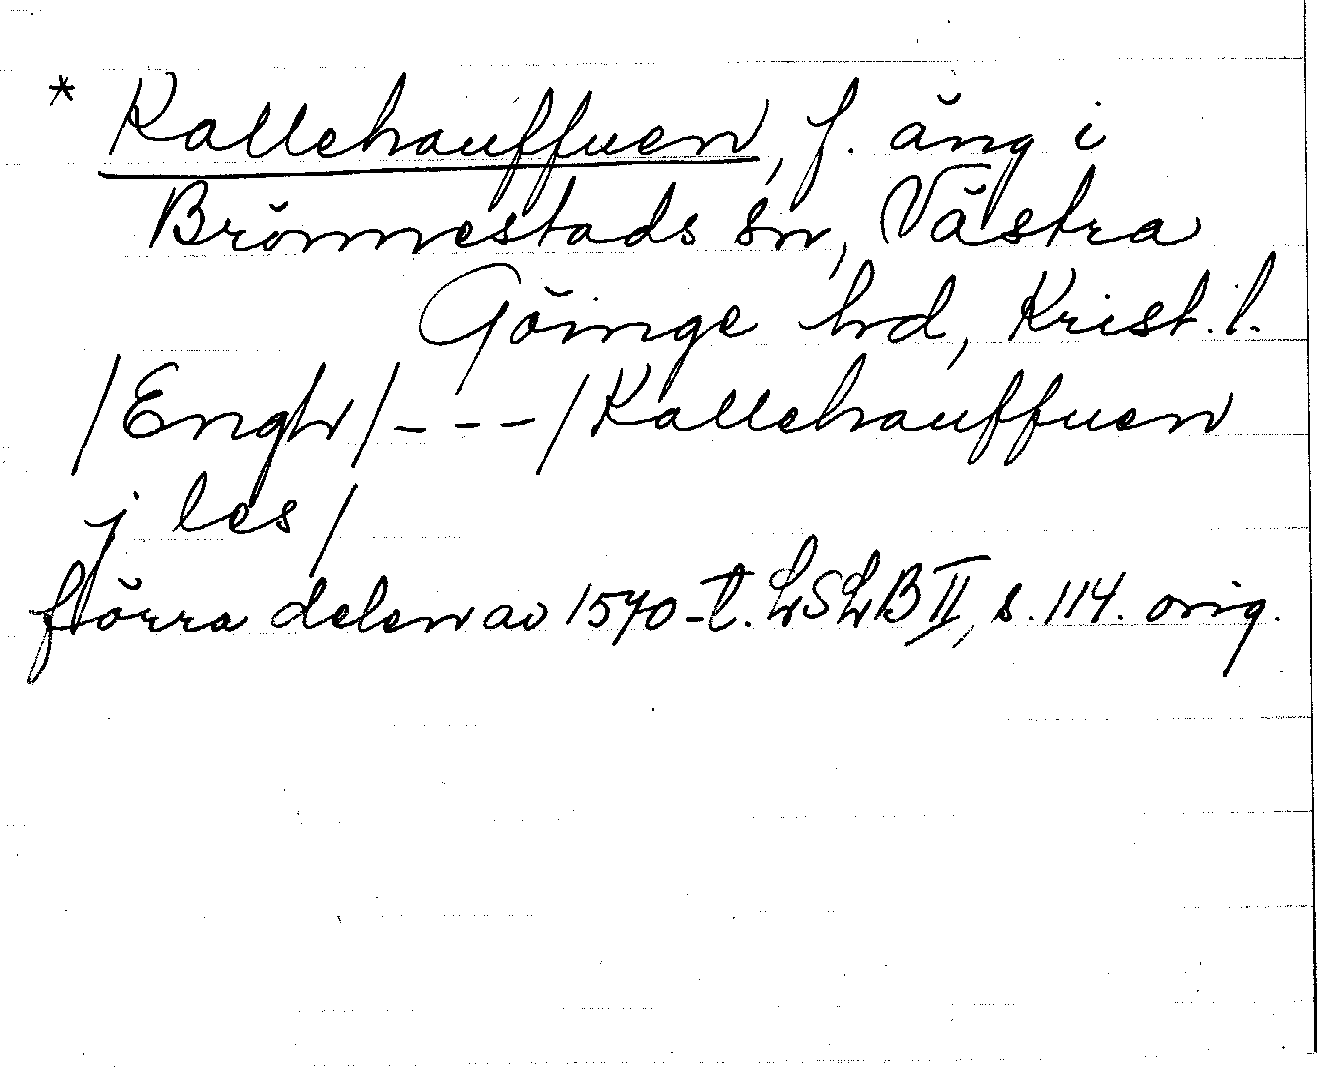 * Kallehauffuen, f. äng i
Brönnestads sn, Västra
Göinge hrd, Krist. l.
/Engh/---/Kallehauffuen
j les/
förra delen av 1570-t. LSLB II, s. 114. orig.